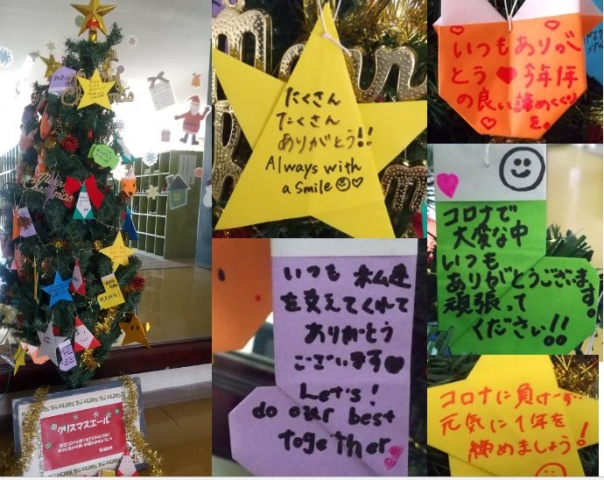 クリスマスエール
たくさん
たくさん
ありがとう!!
Always with
a smile
いつもありが
とう♥今年1年
の良い締めくくり
を。
いつも 私達
を支えてくれて
ありがとう
ございます♥
Let's!
do our best
together
コロナで
大変な中
いつも
ありがとうございます。
頑張って
ください!!
コロナに負けず…
元気に1年を
締めましょう!